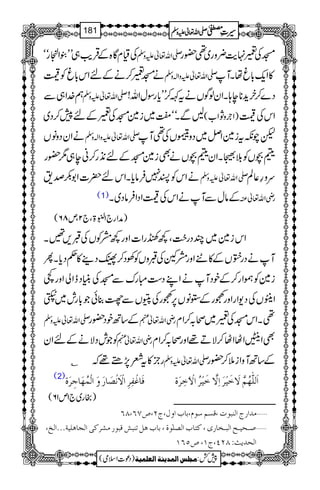 سیرتِ مصطفیٰ صلی اللہ تعالیٰ علیہ وسلم 181
مسجد کی تعمیر نہایت ضروری تھی حضور صلی اللہ تعالیٰ علیہ وسلم کی قیام گاہ کے قریب ہی ”بنو النجار“
کا ایک باغ تھا۔ آپ صلی اللہ تعالیٰ علیہ والہ وسلم نے مسجد تعمیر کرنے کے لئے اس باغ کو قیمت
دے کر خریدنا چاہا۔ ان لوگوں نے یہ کہہ کر ”یا رسول اللہ! صلی اللہ تعالیٰ علیہ وسلم ہم خدا ہی سے
اس کی قیمت (اجر و ثواب) لیں گے۔“ مفت میں زمین مسجد کی تعمیر کے لئے پیش کر دی
لیکن چونکہ یہ زمین اصل میں دو یتیموں کی تھی آپ صلی اللہ تعالیٰ علیہ وسلم نے ان دونوں
یتیم بچوں کو بلا بھیجا۔ ان یتیم بچوں نے بھی زمین مسجد کے لئے نذر کرنی چاہی مگر حضور
سرورِ عالم صلی اللہ تعالیٰ علیہ وسلم نے اس کو پسند نہیں فرمایا۔ اس لئے حضرت ابوبکر صدیق
رضی اللہ تعالیٰ عنہ کے مال سے آپ نے اس کی قیمت ادا فرما دی۔ (1)
(مدارج النبوۃ، ج۲، ص۶۸)
اس زمین میں چند درخت، کچھ کھنڈرات اور کچھ مشرکوں کی قبریں تھیں۔
آپ نے درختوں کے کاٹنے اور مشرکین کی قبروں کو کھود کر پھینک دینے کا حکم دیا۔ پھر
زمین کو ہموار کر کے خود آپ نے اپنے دست مبارک سے مسجد کی بنیاد ڈالی اور کچی
اینٹوں کی دیوار اور کھجور کے ستونوں پر کھجور کی پتیوں سے چھت بنائی جو بارش میں ٹپکتی
تھی۔ اس مسجد کی تعمیر میں صحابہ کرام رضی اللہ تعالیٰ عنہم کے ساتھ خود حضور صلی اللہ تعالیٰ علیہ وسلم
بھی اینٹیں اٹھا اٹھا کر لاتے تھے اور صحابہ کرام رضی اللہ تعالیٰ عنہم کو جوش دلانے کے لئے ان
کے ساتھ آواز ملا کر حضور صلی اللہ تعالیٰ علیہ وسلم رجز کا یہ شعر پڑھتے تھے کہ ؎
اَللّٰهُمَّ لَا خَيْرَ اِلَّا خَيْرُ الْاٰخِرَة فَاغْفِرِ الْاَنْصَارَ وَ الْمُهَاجِرَة (2)
(بخاری ج۱ ص۶۱)
......مدارج النبوت ،قسم سوم،باب اول،ج۲،ص۶۷،۶۸
......صحیح البخاری ، کتاب الصلوة ، باب هل تنبش قبور مشرکی الجاهلية...الخ،
الحديث:۴۲۸،ج۱،ص۱۶۵
پیش کش: مجلس المدینة العلمیة (دعوتِ اسلامی)